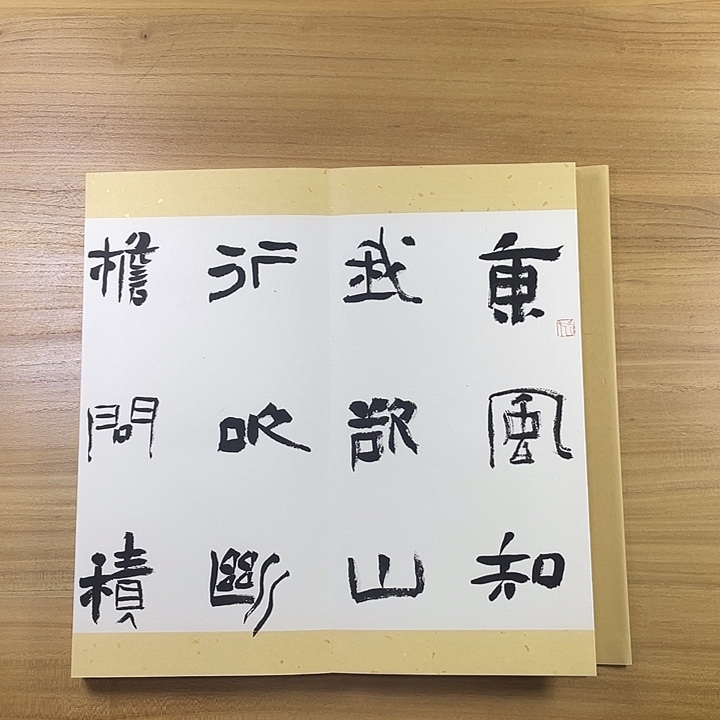 東風知
我欲山
行吹斷
檐間積